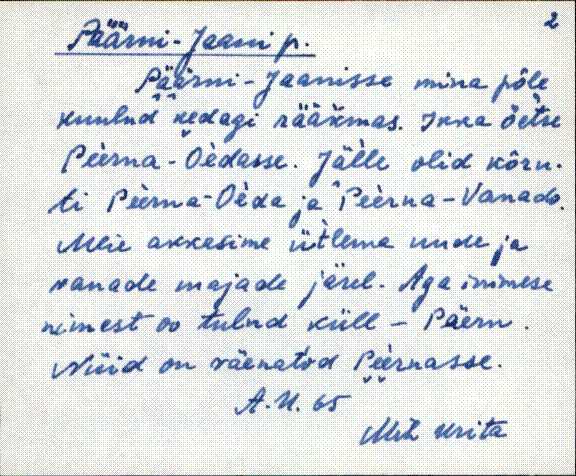 2
Päärni-Jaani p.
Päärni-Jaanisse mina põle
kuulnd kedagi rääkmas. Ikka öètse
Pèerna-Oèdasse. Jälle olid kõrv.
ti Pèerna-Oèda ja Pèerna-Vanado.
Meie akkasime ütlema uude ja
vanade majade järel. Aga inimese
nimest oo tulnd küll - Päern.
Nüid on väenatod Pèernasse.
A.U. 65
Mih Urita